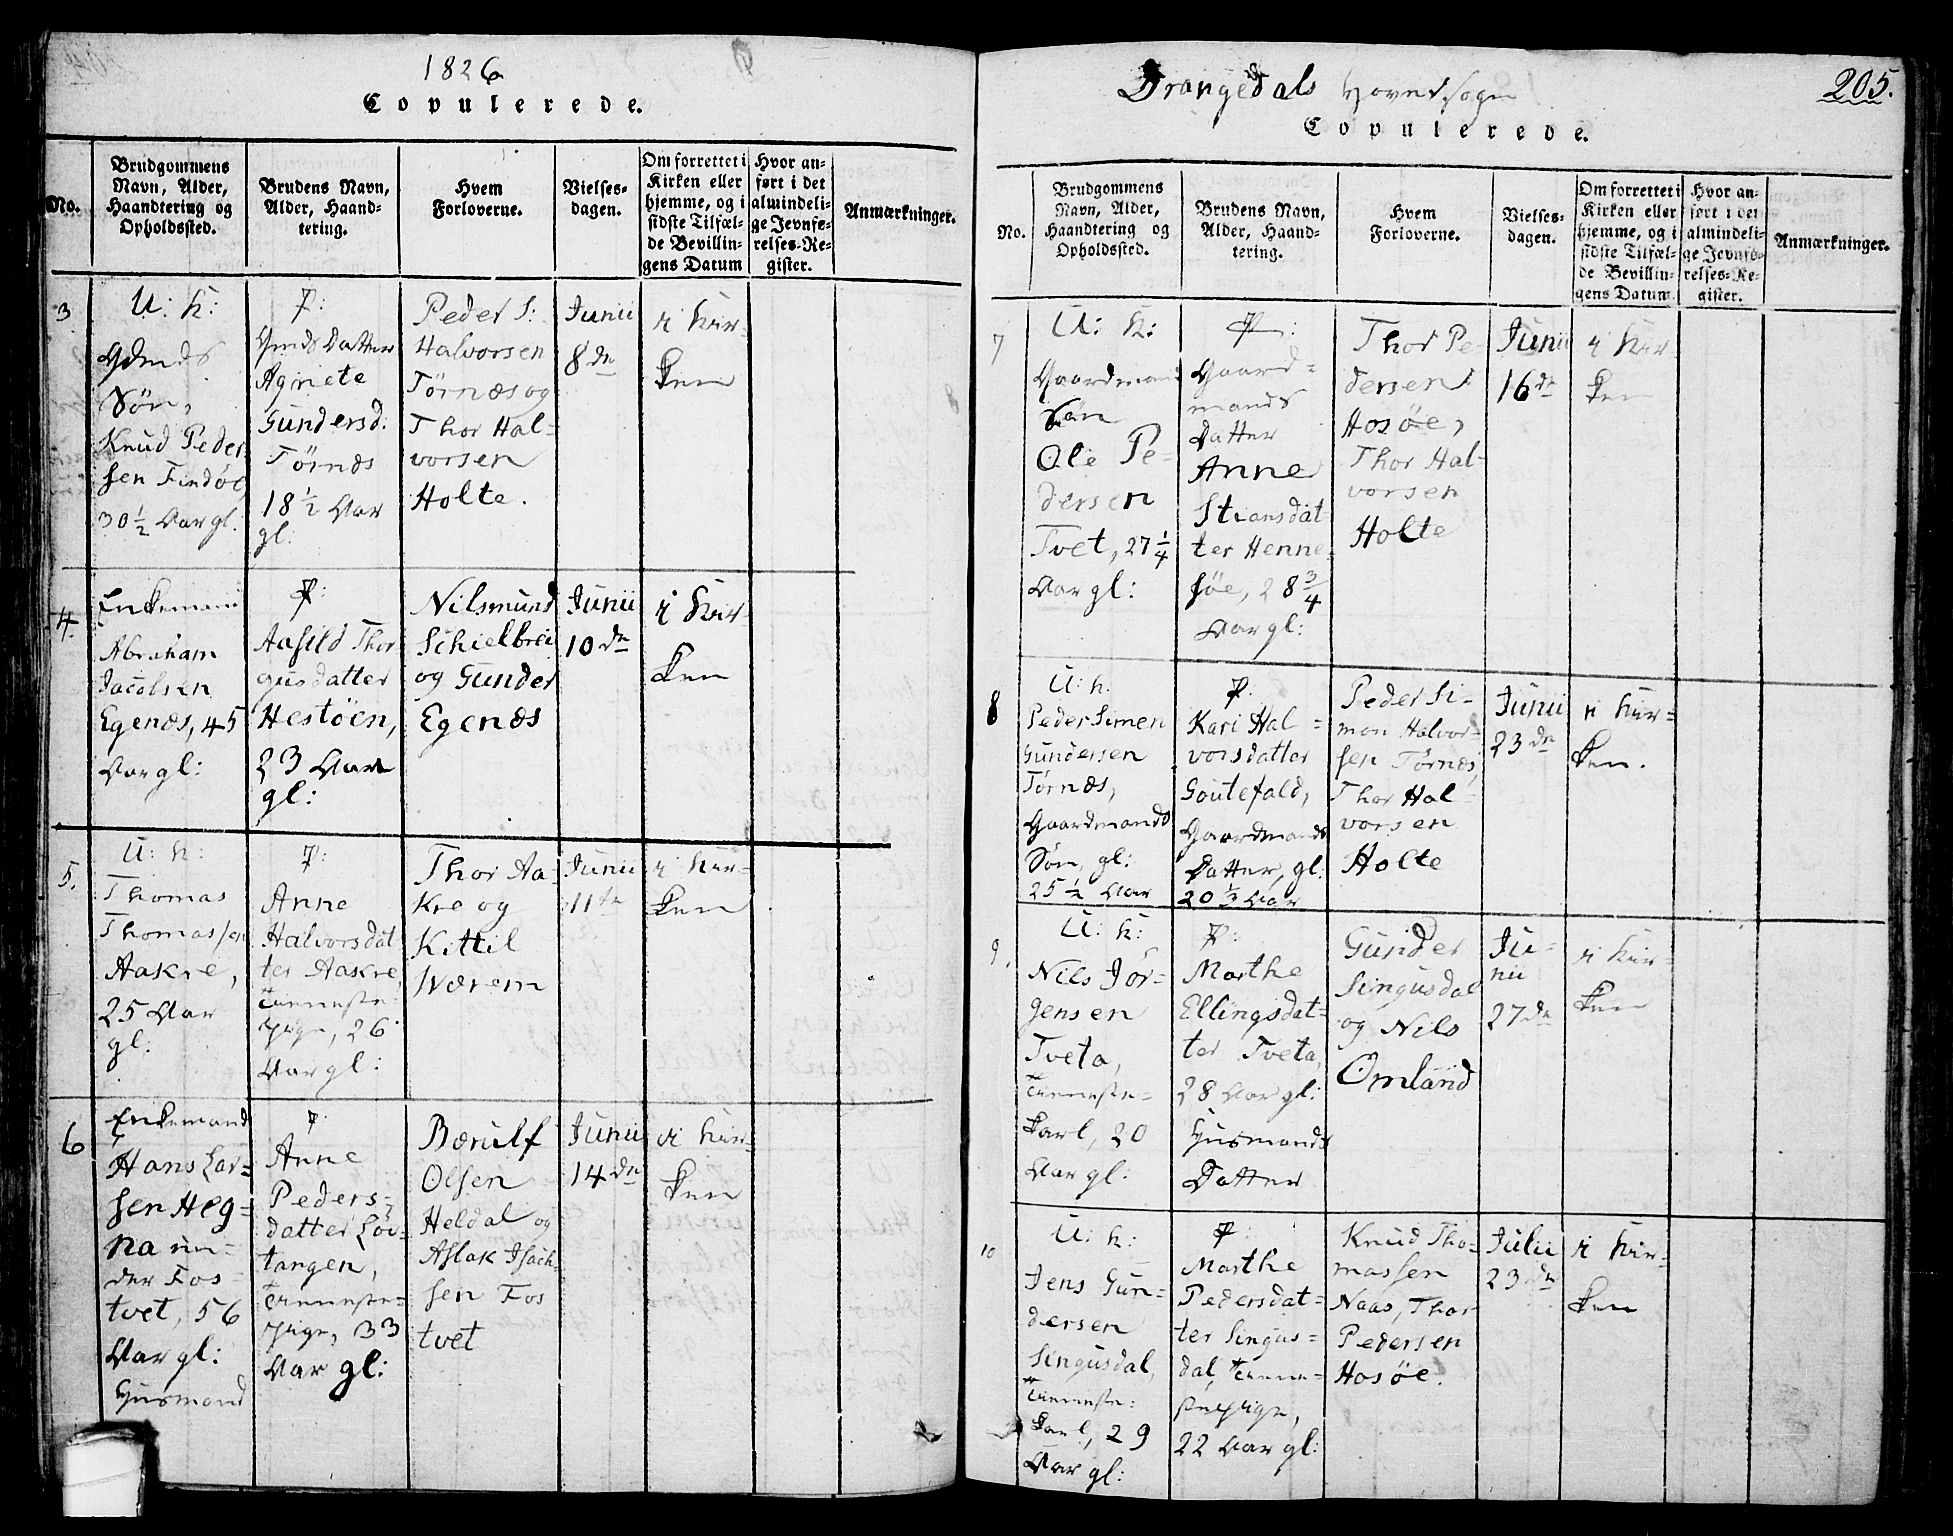 1826
Copulerede.
No.
Brudgommens
Navn, Alder,
Haandtering og
Opholdssted.
Brudens Navn,
Alder, Haand-
tering.
Hvem
Forloverne.
Vielses-
dagen.
Om forrettet i
Kirken eller
hjemme, og i
sidste Tilfæl-
de Bevillin-
gens Datum
Hvor an-
ført i det
almindeli-
ge Jevnfø-
relses-Re-
gister.
Anmærkninger.
3
U: K:
Søn,
Knud Peder
sen Findøe
30 1/2 Aar gl.
P:
Agnete
Gundersd:
Törnes
18 1/2 Aar
gl:
Peder S:
Halvorsen
Törnæs og
Thor Hal-
vorsen
Holte.
Junii
8de
i Kir-
ken
4.
Enkemand
Abraham
Jacobsen
Egenæs, 45
Aar gl:
P:
Aasild Thor
gusdatter
Hestöen,
23 Aar
gl:
Nilsmund
Schielbrei
og Gunder
Egenæs
Junii
10de
i Kir-
ken
5.
U: K:
Thomas
Thomassen
Aakre,
25 Aar
gl:
P:
Anne
Halvorsdat
ter Aakre,
Tieneste-
Pige, 26
Aar gl:
Thor Aa-
kre og
Kittil
Wærem
Junii
11te
i Kir-
ken
6
Enkemand
Hans Lar-
sen Heg-
na un-
der Fos-
tvet, 56
Aar gl:
Husmand
P:
Anne
Peders-
datter Löv-
tangen,
Tieneste-
Pige, 33
Aar gl:
Bærulf
Olsen
Heldal og
Aslak Isach-
sen Fos
tvet
Junii
14de
i Kir-
ken
Drangedals Hovedsogn
205.
Copulerede.
No.
Brudgommens
Navn, Alder,
Haandtering og
Opholdssted.
Brudens Navn,
Alder, Haand-
tering.
Hvem
Forloverne.
Vielses-
dagen.
Om forrettet i
Kirken eller
hjemme, og i
sidste Tilfæl-
de Bevillin-
gens Datum.
Hvor an-
ført i det
almindeli-
ge Jevnfø-
relses-Re-
gister.
Anmærkninger.
7
U: K:
Gaardmands
Søn
Ole Pe-
dersen
Tvet, 27 1/4
Aar gl:
P:
Gaard-
mands
Datter
Anne
Stiansdat
ter Henne-
søe, 28 3/4
Aar gl:
Thor Pe-
dersen
Hosøe,
Thor Hal-
vorsen
Holte
Junii
16de
i Kir-
ken
8
U: K.
Peder Simen
Gundersen
Törnæs,
Gaardmands
Søn, gl:
25 1/2 Aar
P:
Kari Hal-
vorsdatter
Goutefald,
Gaardmands
Datter, gl:
20 1/2 Aar
Peder Si-
mon Halvor-
sen Törnæs,
Thor Hal-
vorsen
Holte
Junii
23de
i Kir-
ken.
9.
U: K:
Nils Jör-
gensen
Tveta,
Tieneste-
karl, 20
Aar gl:
P:
Marthe
Ellingsdat-
ter Tveta,
28 Aar gl:
Husmands
Datter
Gunder
Singusdal
og Nils
Omland
Ju-
nii
27de
i Kir-
ken
10
U: K:
Jens Gun-
dersen
Singusdal,
Tieneste-
karl, 29
Aar gl:
P:
Marthe
Pedersdat-
ter Singus-
dal, Tiene-
ste Pige,
22 Aar gl:
Knud Tho-
massen
Naas, Thor
Pedersen
Hosøe.
Julii
23de
i Kir-
ken